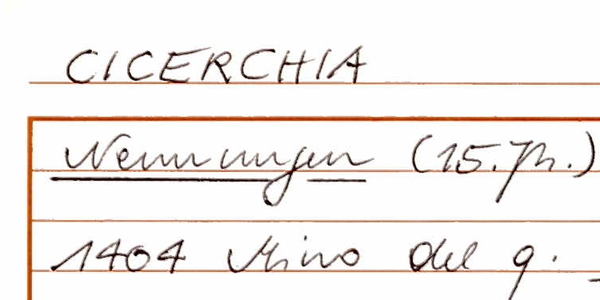 CICERCHIA
Nennungen (15. Jh.)
1404 Mino del q.